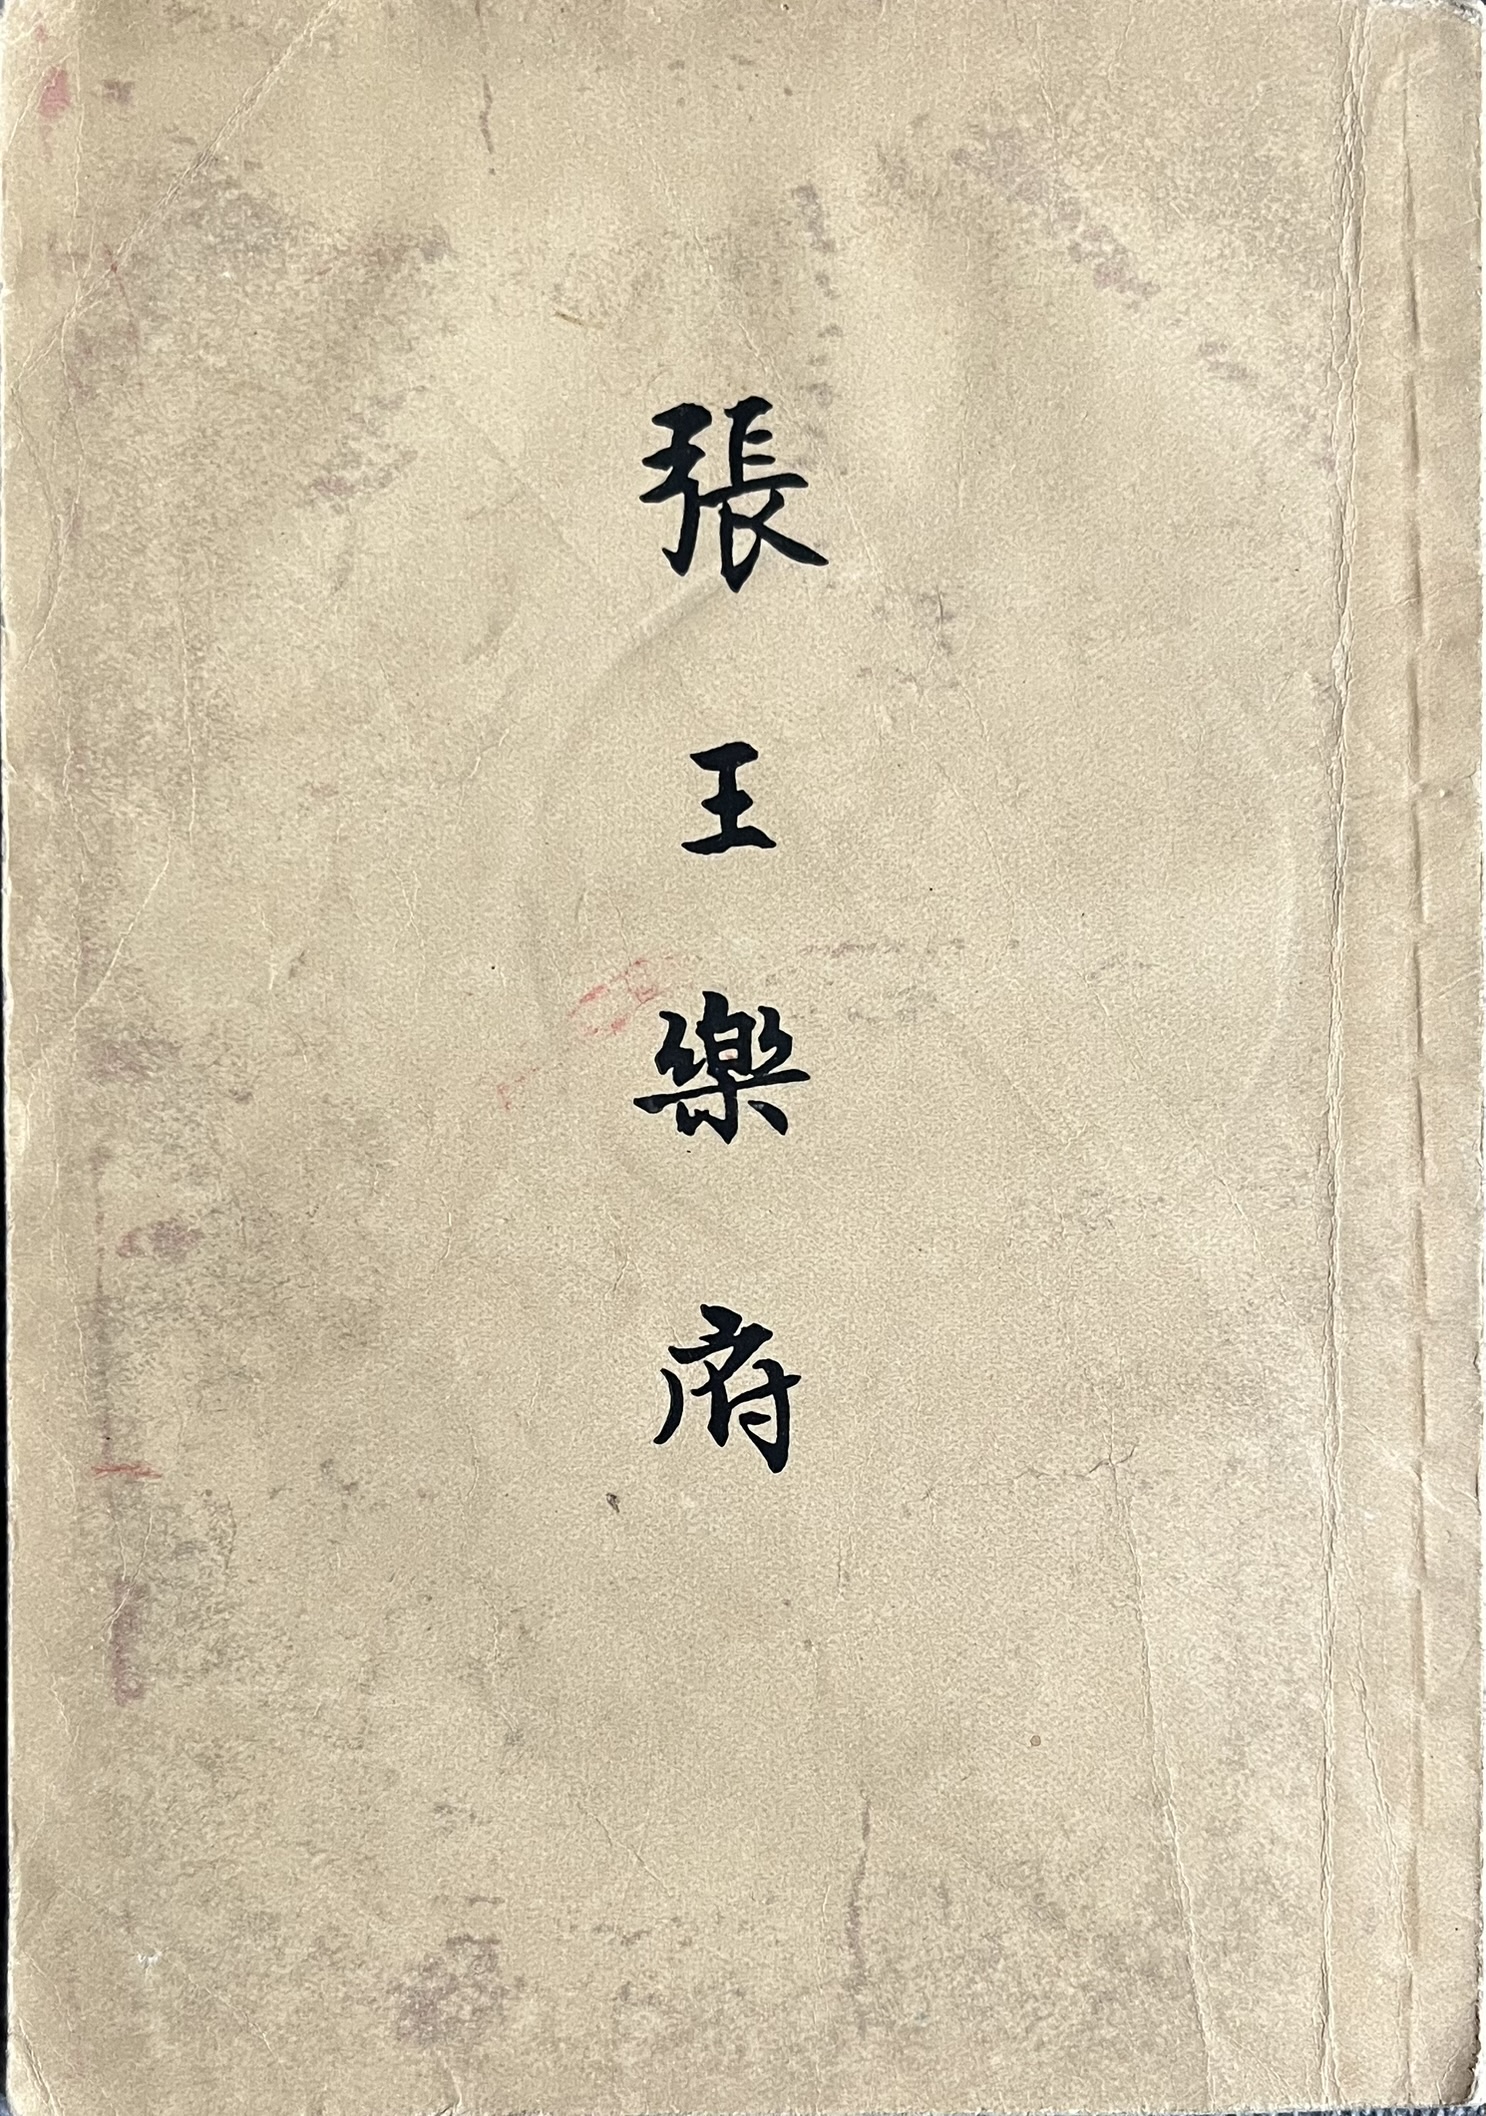 張王樂府